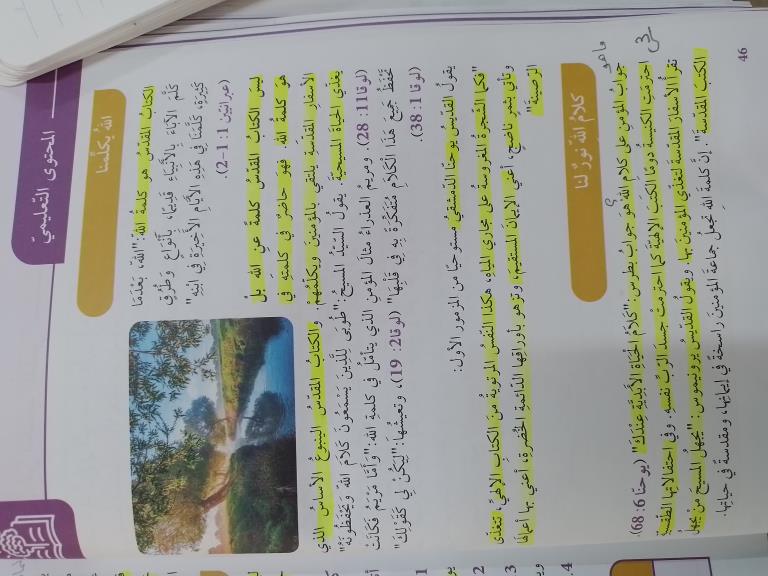 المحتوى التعليمي
اللهُ يكلّمنا
الكتابُ المقدّسُ هو كلمةُ الله: "اللهُ، بَعْدَمَا
كَلَّمَ الآبَاءَ بِالأَنْبِيَاءِ قَدِيمًا بِأَنْوَاعٍ وَطُرُقٍ
كَثِيرَةٍ، كَلَّمَنَا فِي هذِهِ الأَيَّامِ الأَخِيرَةِ فِي ابْنِهِ"
(عبرانيّين 1: 1-2).
ليسَ الكتابُ المقدّسُ كلمةً عنِ اللهِ بلْ
هو كلمةُ اللهِ فهوَ حاضرٌ في كلمتِهِ في
الأسفارِ المقدّسةِ يلتقي بالمؤمنينَ ويكلّمُهُمْ. والكتابُ المقدّسُ الينبوعُ الأساسُ الذي
يغذّي الحياةَ المسيحيّةَ. يقولُ السيّدُ المسيحُ: "طُوبَى لِلَّذِينَ يَسْمَعُونَ كَلاَمَ اللهِ وَيَحْفَظُونَهُ"
(لوقا11: 28). ومريمُ العذراءُ مثالُ المؤمنِ الذي يتأمّلُ في كلمةِ الله: "وَأَمَّا مَرْيَمُ فَكَانَتْ
تَحْفَظُ جَمِيعَ هذَا الْكَلاَمِ مُتَفَكِّرَةً بِهِ فِي قَلْبِهَا" (لوقا2: 19)، وتعيشُها: "لِيَكُنْ لِي كَقَوْلِكَ"
(لوقا 1: 38).
يقولُ القدّيسُ يوحنّا الدّمشقيُّ مستوحيًا من المزمورِ الأوّل:
"فكما الشّجرةُ المغروسةُ على مجاري المياهِ، هكذا النّفسُ المرتويةُ منَ الكتابِ الإلهيِّ، تتغذّى
وتأتي بثمرٍ ناضجٍ، أعني الإيمانَ المستقيمَ، وتزهو بأوراقِها الدّائمةِ الخُضرةِ، أعني بها أعمالَها
المَرْضِيَّةَ"
كلامُ اللهِ نورٌ لنا
ما هو
جوابُ المؤمنِ على كلامِ اللهِ هو جوابُ بطرس: "كَلاَمُ الْحَيَاةِ الأَبَدِيَّةِ عِنْدَكَ" (يوحنّا 6: 68).
؟
احترمَتِ الكنيسةُ دومًا الكتبَ الإلهيّةَ كما احترمَتْ جسدَ الرّبِّ نفسِهِ. وفي احتفالاتِها الطّقسيّةِ
تقرأُ الأسفارَ المقدّسةَ لتغذّيَ المؤمنينَ بها. ويقولُ القدّيسُ يرونيموس: "يجهلُ المسيحَ مَن يجهلُ
الكتبَ المقدّسةَ". إنَّ كلمةَ اللهِ تجعلُ جماعةَ المؤمنينَ راسخةً في إيمانِها، ومقدّسةً في حياتِها.
46